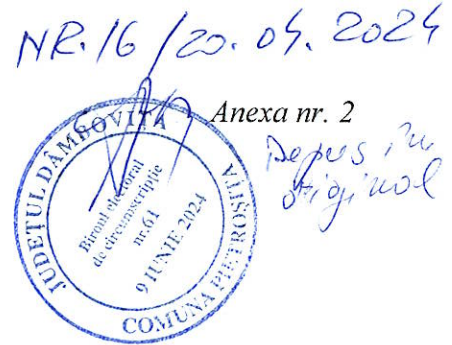 NR. 16 / 20. 04. 2024
Anexa nr. 2
Depus în
original
JUDEȚUL DÂMBOVIȚA
Biroul electoral
de circumscripție
nr.61
9 IUNIE 2024
COMUNA PIETROȘIȚA